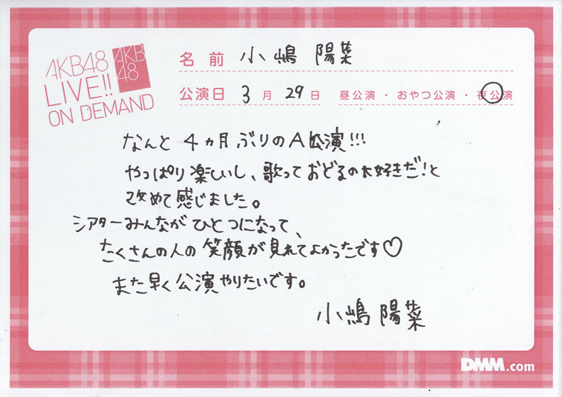 AKB48
LIVE!!
ON DEMAND
AKB
48
名前 小嶋 陽菜
公演日 3月29日 昼公演・おやつ公演・夜公演
なんと 4ヵ月ぶりのA公演!!!
やっぱり楽しいし、歌っておどるの大好きだ!と
改めて感じました。
シアターみんながひとつになって、
たくさんの人の笑顔が見れてよかったです♡
また早く公演やりたいです。
小嶋 陽菜
DMM.com